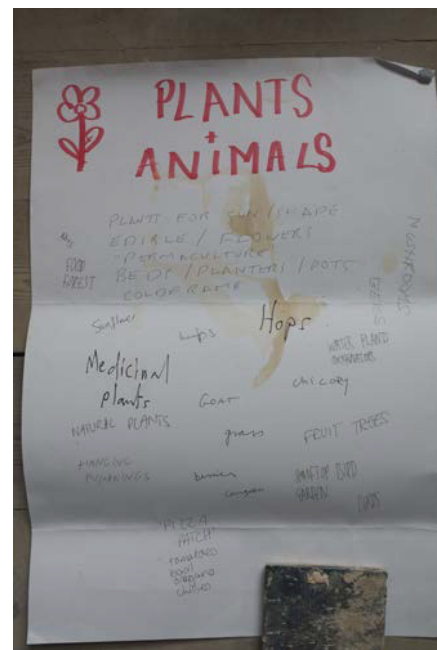 PLANTS
+
ANIMALS
PLANTS FOR SUN/SHADE
EDIBLE / FLOWERS
"PERMACULTURE"
BEDS / PLANTERS / POTS
COLDFRAME
FOOD
FOREST
Sunflower
Hops
WATER PLAND
Medicinal
plants
GOAT
chicory
NATURAL PLANTS
grass
FRUIT TREES
HANGING
ROOFTOP BIRD
GARDEN
"PIZZA
PATCH"
tomatoes
basil
oregano
chives